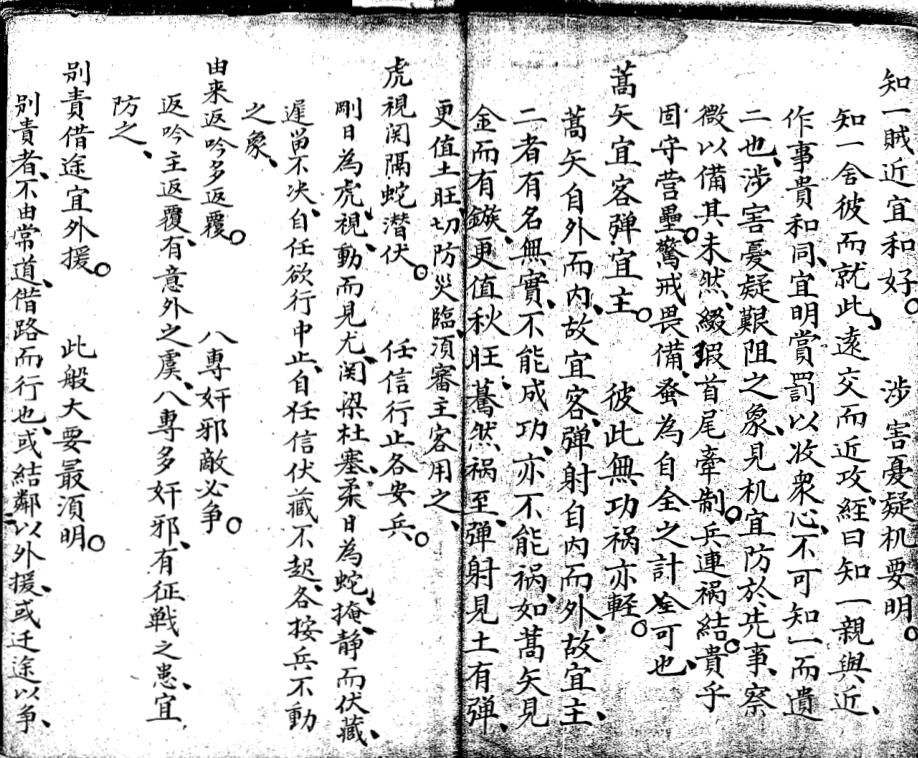 知一賊近宜和好。涉害憂疑机要明。
知一舍彼而就此、遠交而近攻、經曰知一親與近、
作事貴和同、宜明賞罰以收衆心、不可知一而遺
二也、涉害憂疑艱阻之象、見机宜防於先事、察
微以備其未然、綴瑕首尾牽制。兵連禍結。貴乎
固守营壘。驚戒畏備、蚤為自全之計全可也、
蒿矢宜客弹宜主。彼此無功祸亦輕。
蒿矢自外而内、故宜客、弹射自内而外、故宜主、
二者有名無實、不能成功、亦不能祸、如蒿矢見
金而有鏃、更值秋旺、驀然祸至、弹射見土有弹、
更值土旺切防災臨、須審主客用之、
虎視関隔蛇潜伏。任信行止各安兵。
剛日為虎視、動而見尤、関梁杜塞、柔日為蛇掩、静而伏藏、
遲畄不决、自任欲行中止、自任信伏藏不起、各按兵不動
之象、
由来返吟多返覆。八專奸邪敵必争。
返吟主返覆、有意外之虞、八專多奸邪、有征戦之患、宜
防之、
别責借途宜外援。此般大要最須明。
别責者、不由常道、借路而行也、或結鄰以外援、或迂途以争、